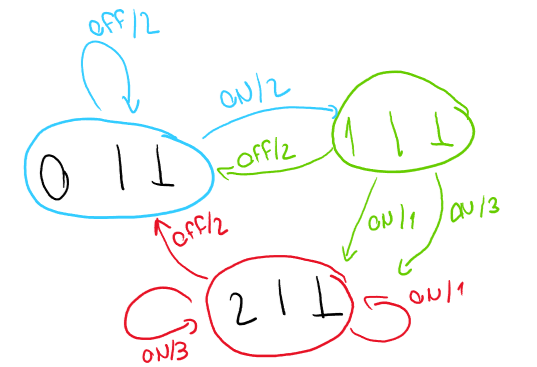 off/2
ON/2
0 | 1
1 | 1
off/2
ON/1
ON/3
off/2
2 | 1
ON/1
ON/3